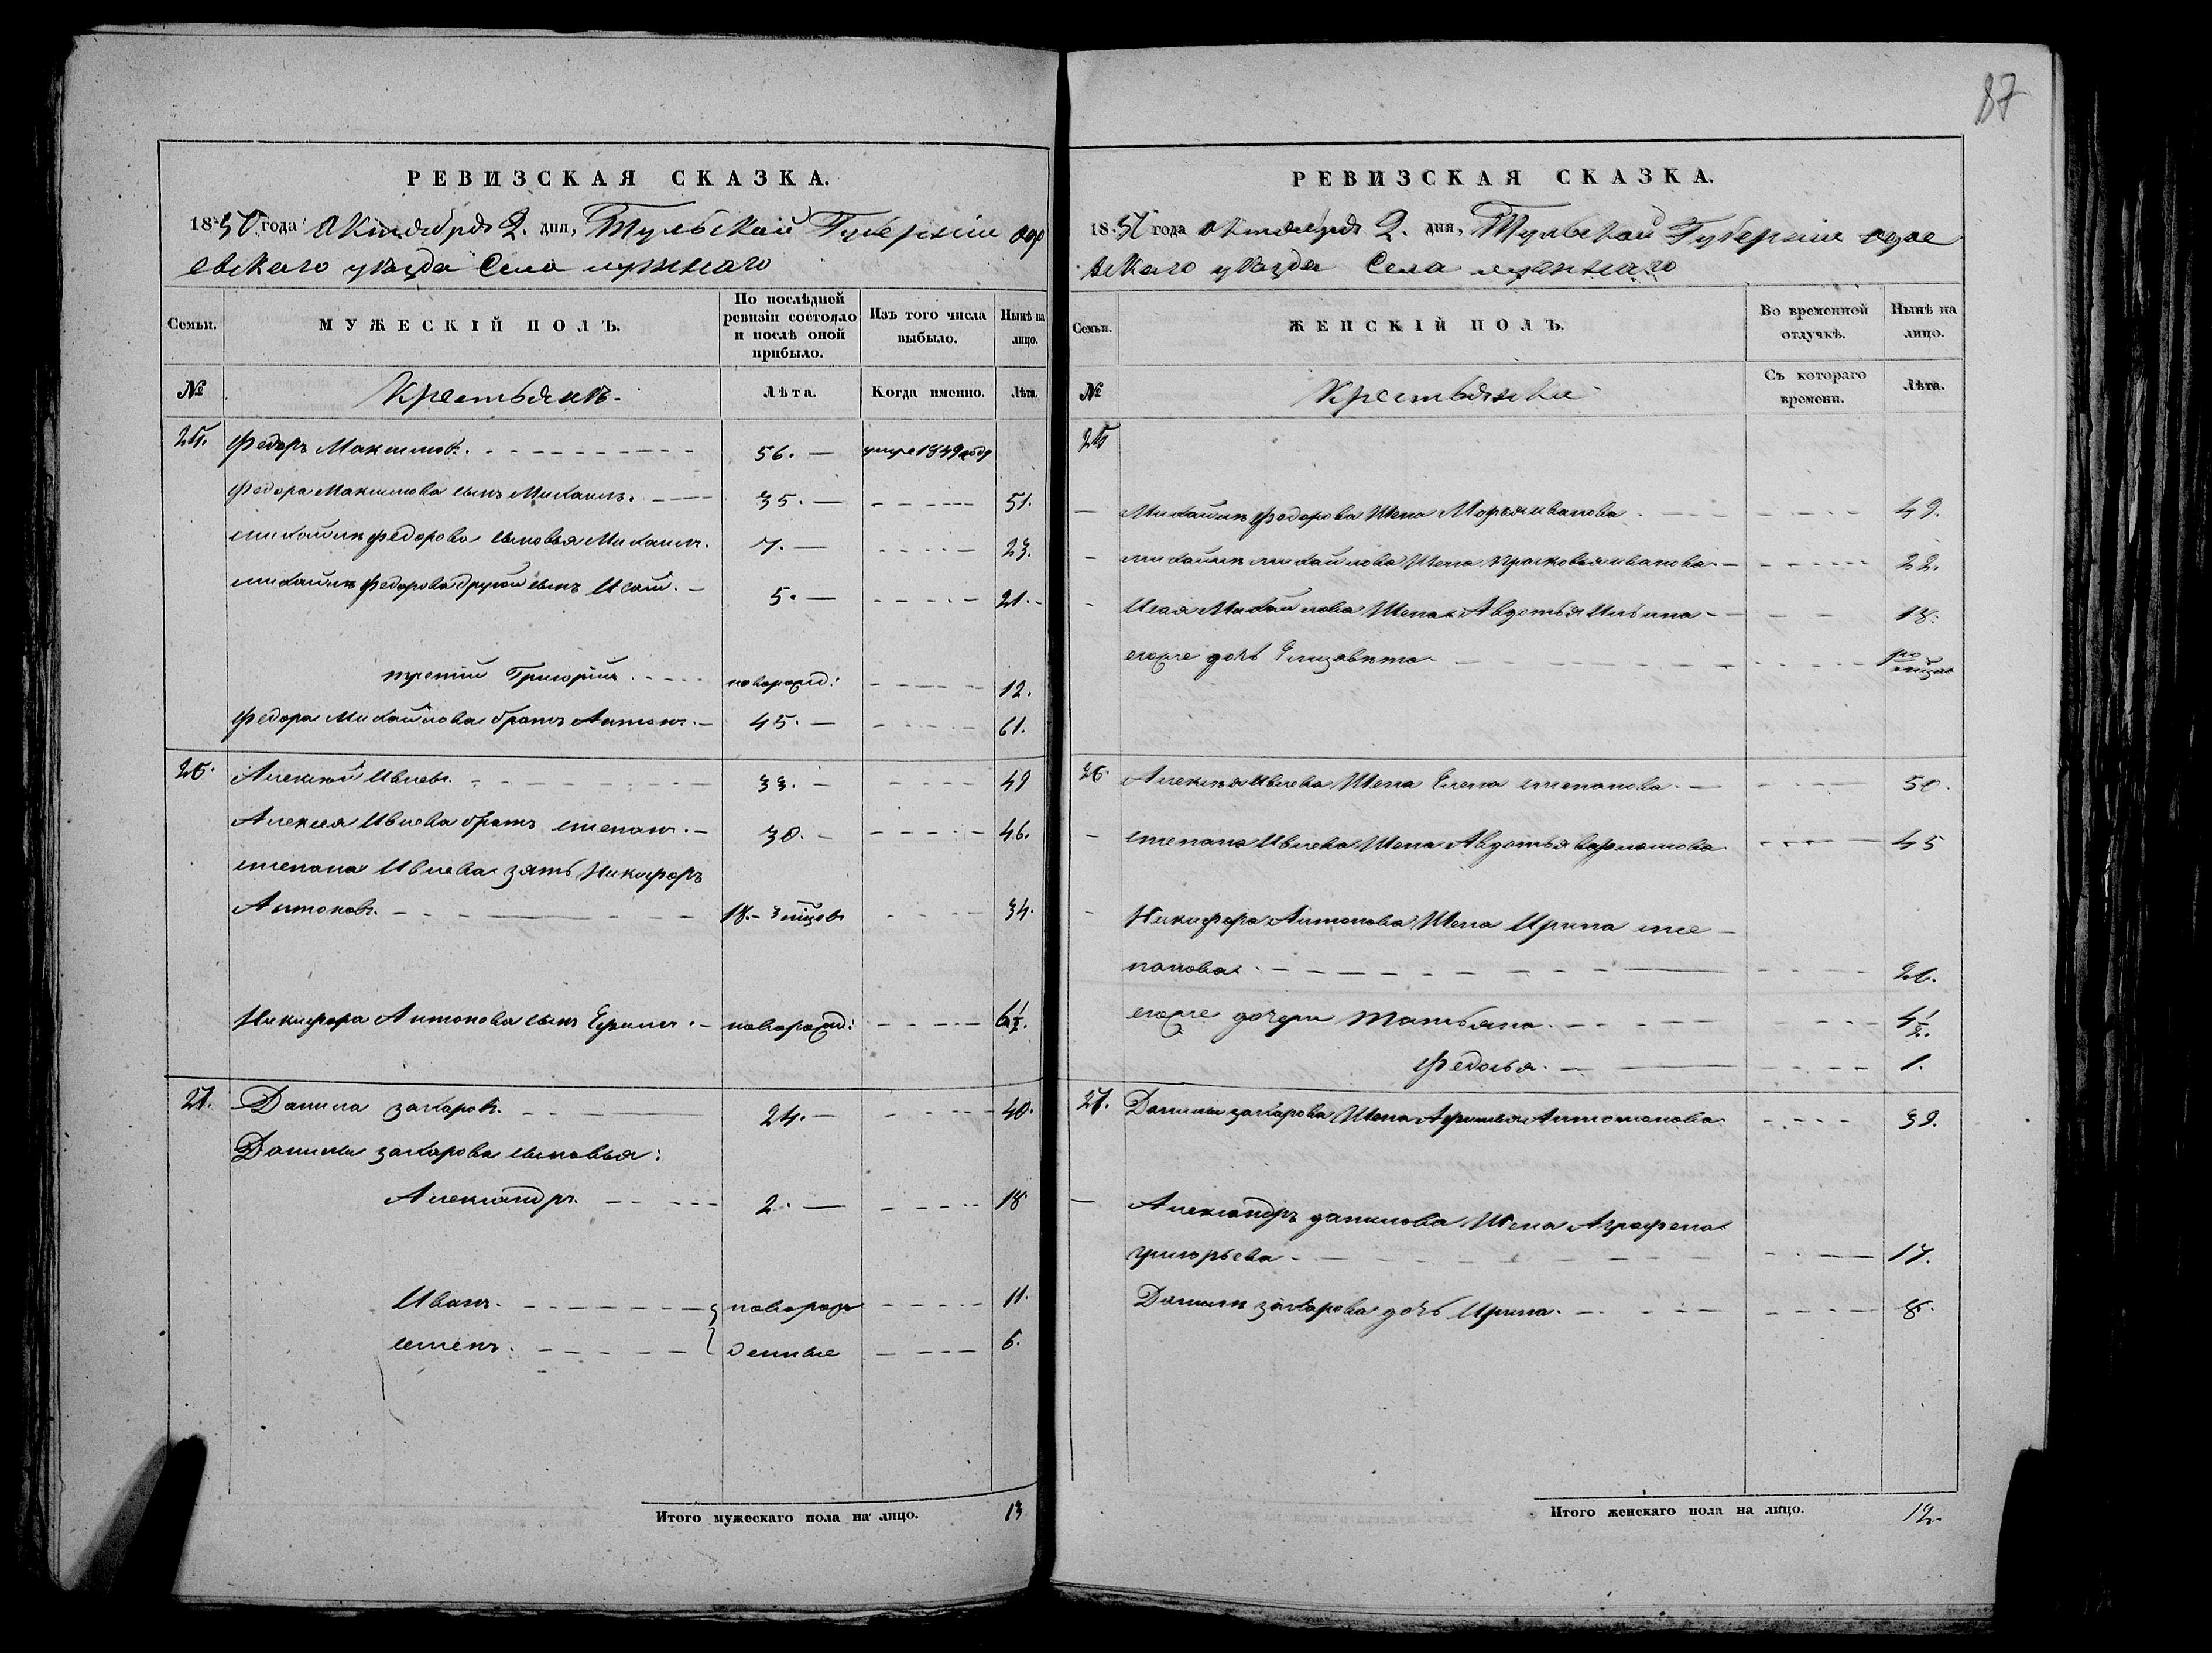 87
РЕВИЗСКАЯ СКАЗКА.
1850 года Октября 2. дня, Тульской Губернiи одо
евскаго уѣзда Села лужнаго
Семьи.
МУЖЕСКIЙ ПОЛЪ.
По послѣдней
ревизiи состояло
и послѣ оной
прибыло.
Изъ того числа
выбыло.
Нынѣ на
лицо.
№
Крестьянъ
Лѣта.
Когда именно.
Лѣта.
25. Федоръ Максимовъ. 56. умре 1849 году
Федора Максимова сынъ Михаилъ. 35. 51.
михайлы федорова сыновья Михаилъ. 7. 23.
михайлы федорова другой сынъ Исай. 5. 21.
третiй Григорiй новорожд: 12.
Федора Михайлова братъ Антонъ. 45. 61.
26. Алексей Ивлевъ. 33. 49
Алексея Ивлева братъ степанъ. 30. 46.
степана Ивлева зять Никифоръ
Антоновъ. 18. 34.
Никифора Антонова сынъ Ефимъ новорожд: 6½.
27. Данила захаровъ. 24. 40.
Данилы захарова сыновья:
Александръ 2. 18
Иванъ. новорож 11.
семенъ. денные 6.
Итого мужескаго пола на лицо. 13
РЕВИЗСКАЯ СКАЗКА.
1850 года Октября 2. дня, Тульской Губернiи одое
вскаго уѣзда Села лужнаго
Семьи.
ЖЕНСКIЙ ПОЛЪ.
Во временной
отлучкѣ.
Нынѣ на
лицо.
№
Крестьянки
Съ котораго
времени.
Лѣта.
25
Михайлы федорова Жена Марья иванова 49.
михайлы михайлова Жена прасковья иванова. 22.
Исая Михайлова Жена Авдотья Ильина 18.
егоже дочь Елизавета
26. Алексѣя Ивлева Жена Елена степанова. 50.
степана Ивлева Жена Авдотья 45
Никифора Антонова Жена Ирина сте
панова. 26.
егоже дочери татьяна. 4½.
федосья. 1.
27. Данилы захарова Жена Афимья 39.
Александръ данилова Жена Аграфена
григорьева 17.
Данилы захарова дочь Ирина. 8.
Итого женскаго пола на лицо. 12.